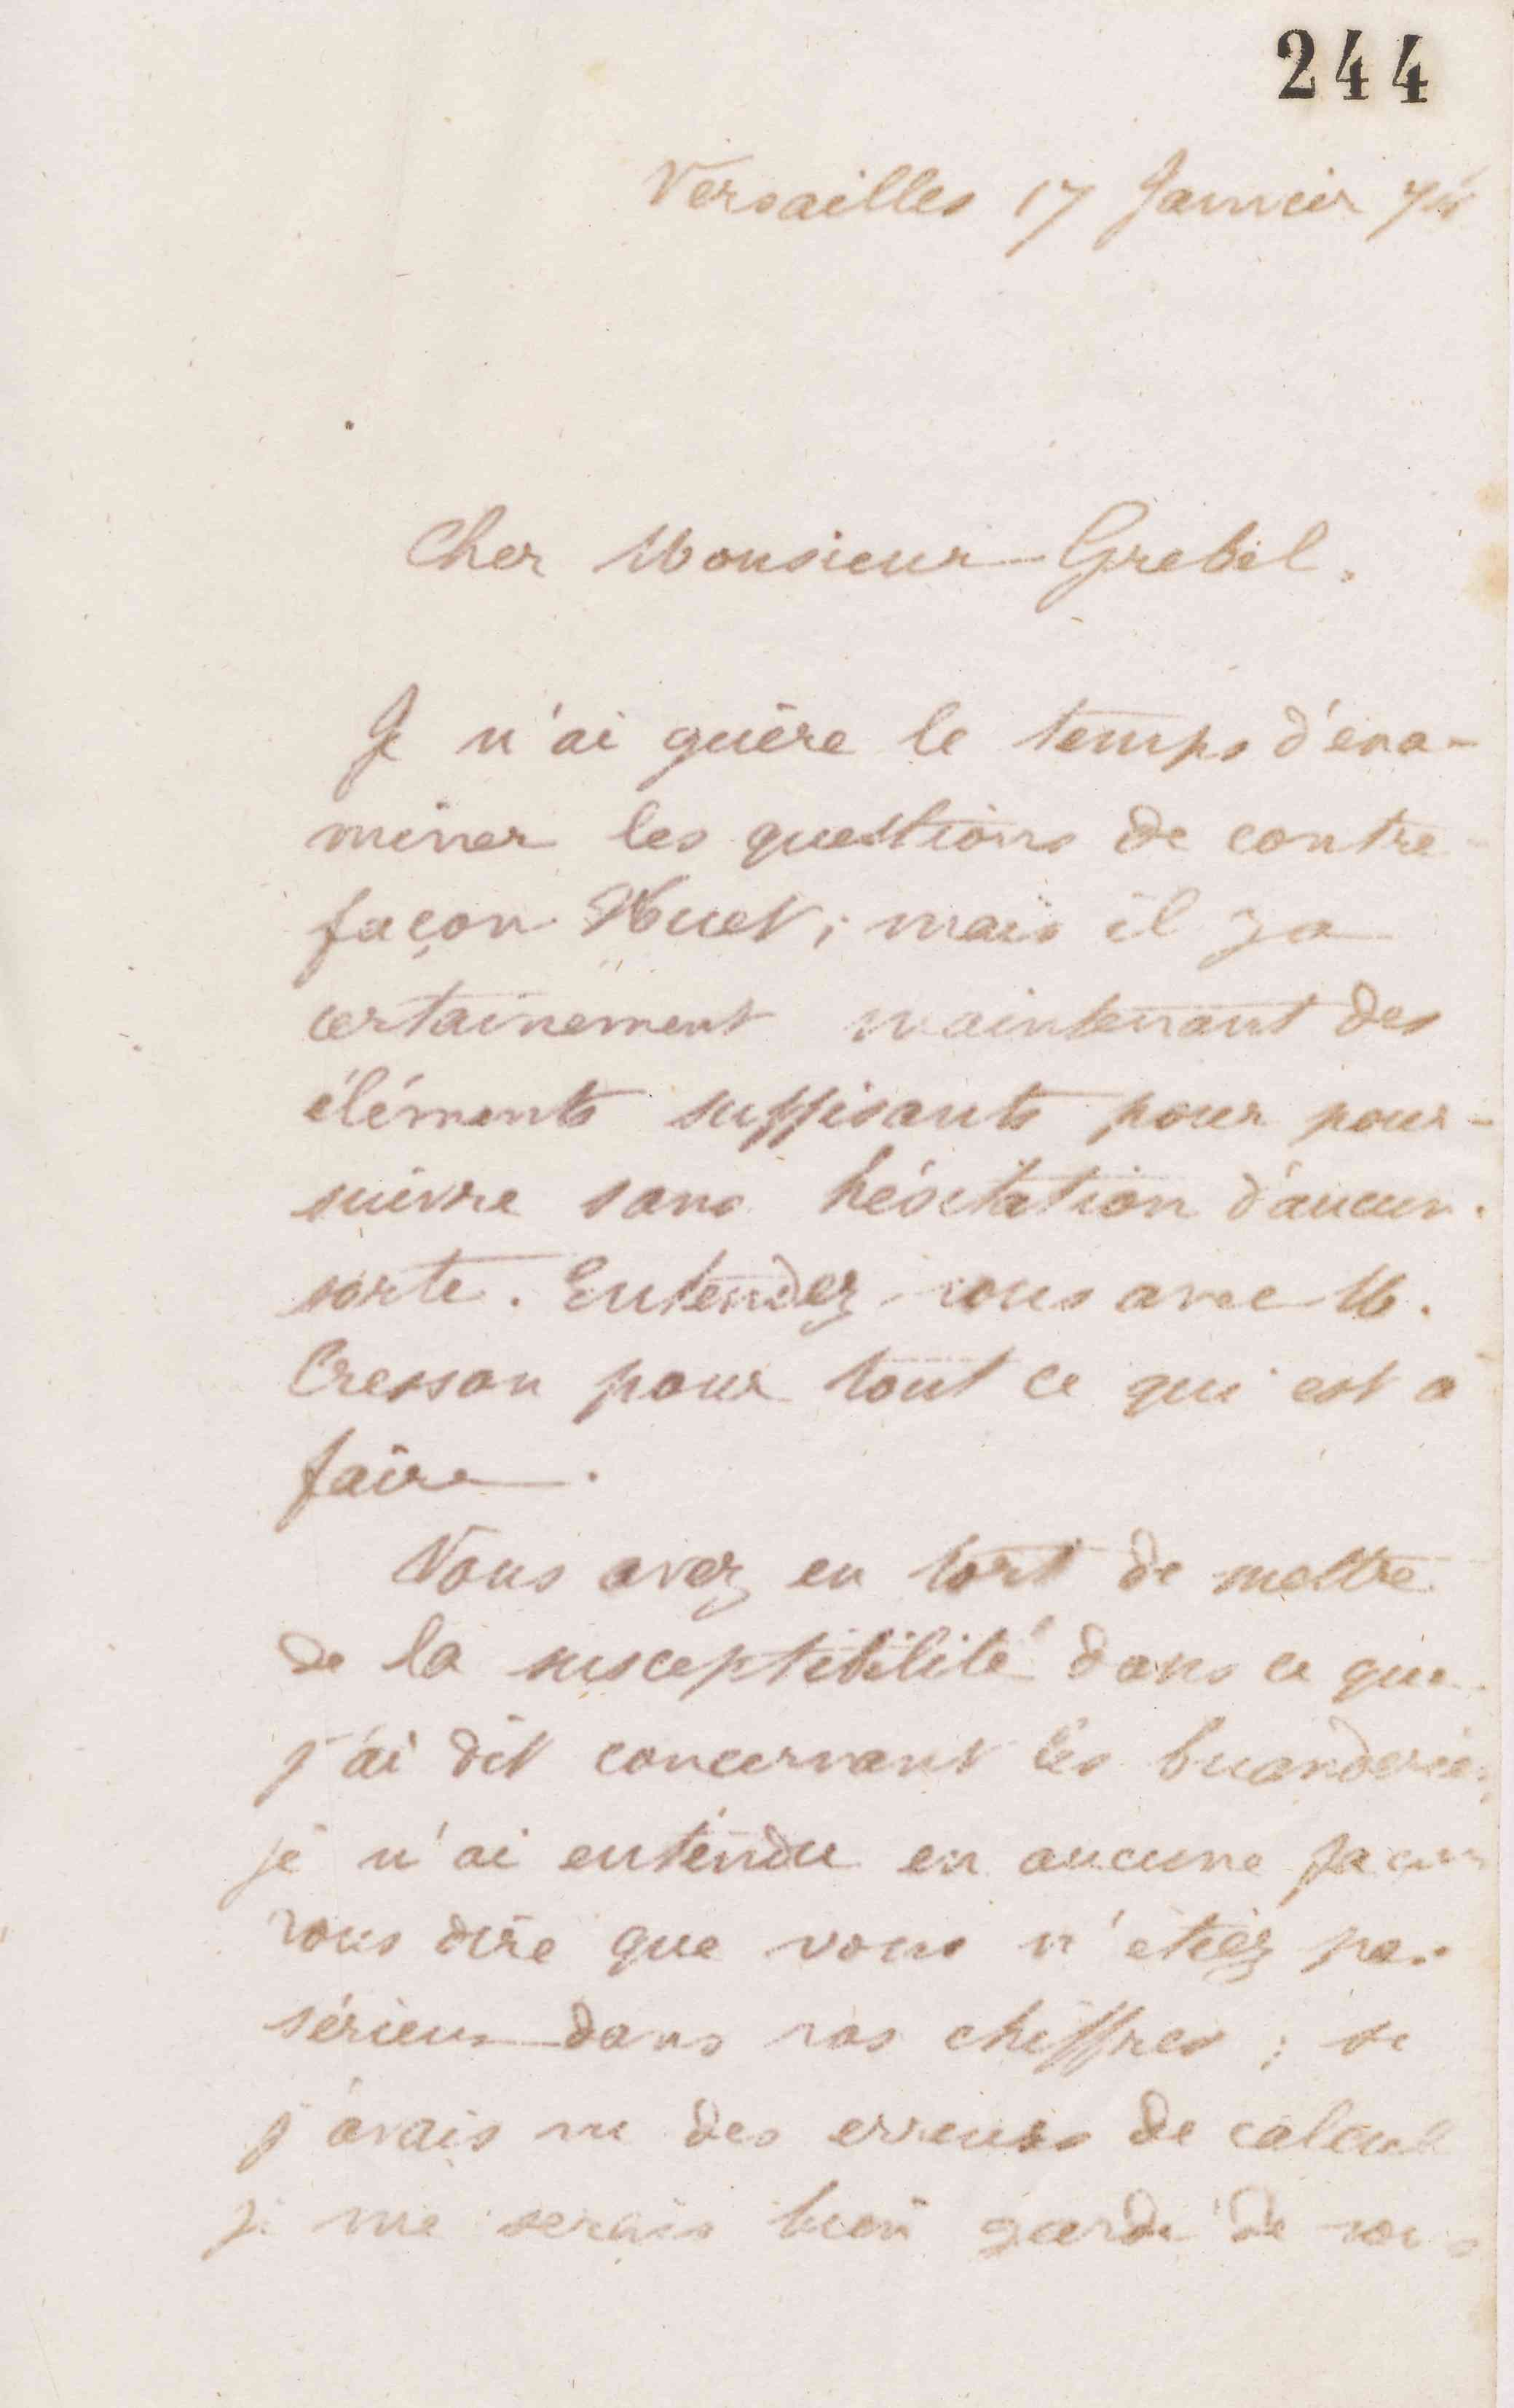 244
Versailles 17 Janvier 74
Cher Monsieur Grebel,
Je n'ai guère le temps d'exa-
miner les questions de contre-
façon Huet; mais il y a
certainement maintenant des
éléments suffisants pour pour-
suivre sans hésitation d'aucune
sorte. Entendez vous avec M.
Cresson pour tout ce qui est à
faire.
Vous avez eu tort de mettre
de la susceptibilité dans ce que
j'ai dit concernant les buanderies,
je n'ai entendu en aucune façon
vous dire que vous n'étiez pas
sérieux dans vos chiffres; si
j'avais vu des erreurs de calcul
je me serais bien gardé de vous